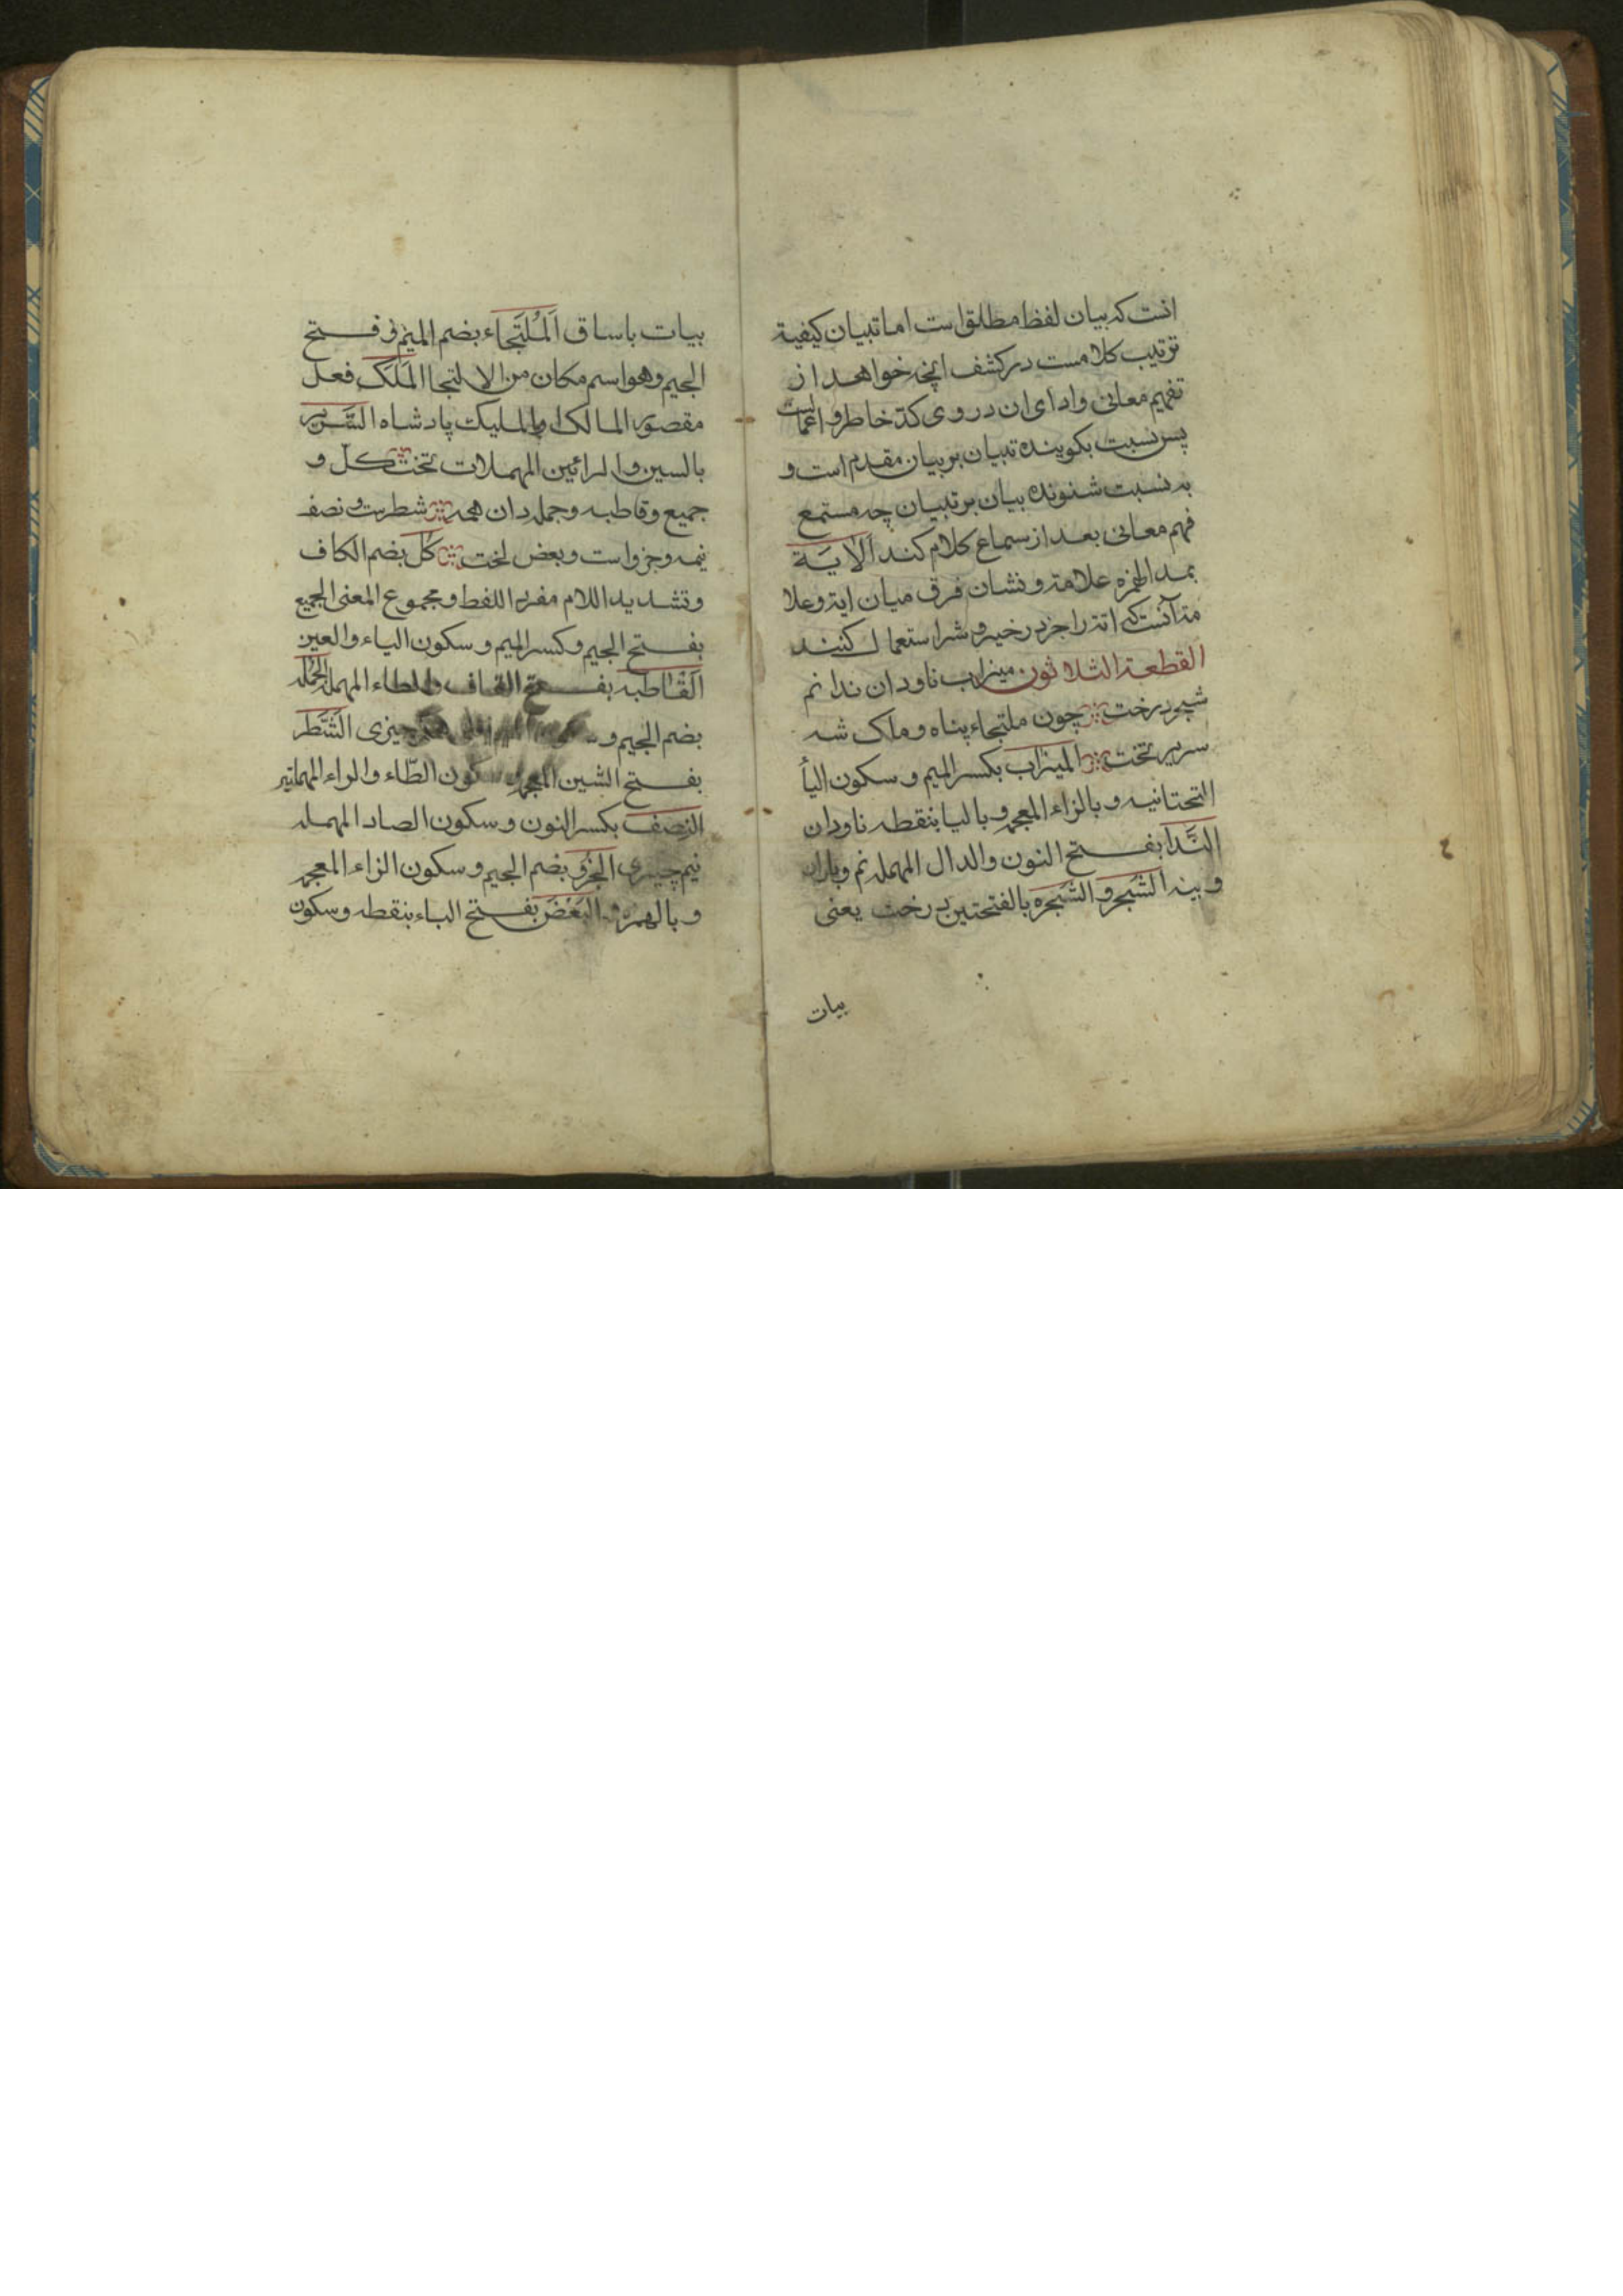 انست که بیان لفظ مطلق است اما تبیان کیفیة
ترتیب کلامست در کشف انچه خواهد از
تفهیم معانی و ادای ان در وی کد خاطر و اعمالست
پس نسبت بکوینده تبیان بر بیان مقدم است و
به نسبت شنونده بیان بر تبیان چه مستمع
فهم معانی بعد از سماع کلام کند اَلْآیَة
بمد الهمزه علامة و نشان فرق میان ایة و علا
مة آنست که ایة را جز در خیر و شر استعمال کنند
القطعة الثلاثون میزاب ناودان ندا نم
شجر درخت چون ملتجاء پناه و ملک شه
سریر تخت المیزاب بکسر المیم و سکون الیأ
التحتانیه و بالزاء المعجمه و بالبا بنقطه ناودان
النَّدا بفتح النون و الدال المهمله نم و باران
و بینه الشَجَر و الشَجَره بالفتحتین درخت یعنی
بیات
بیات باساق اَلمُلتَجاء بضم المیم و فتح
الجیم و هو اسم مکان من الالتجا المَلَک فعل
مقصور المالک او الملیک پادشاه السَّریر
بالسین و الرائین المهملات تخت کل و
جمیع و قاطبه و جمله دان همه شطرست و نصف
نیمه و جزو است و بعض لخت کُل بضم الکاف
و تشدید اللام مفرد اللفظ و مجموع المعنی الجمیع
بفتح الجیم و کسر المیم و سکون الیاء و العین
اَلقْاطبه بفتح القاف و الطاء المهمله الجُمله
بضم الجیم و چیزی الشَّطر
بفتح الشین المعجمه و سکون الطّاء و الراء المهملتیر
النصف بکسر النون و سکون الصاد المهمله
نیم چیزی الجُزو بضم الجیم و سکون الزاء المعجمه
و بالهمزه و البَعْض بفتح الباء بنقطه و سکون